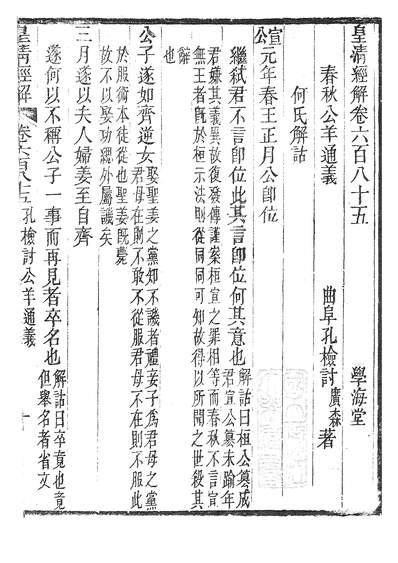 皇清經解卷六百八十五 學海堂
春秋公羊通義 曲阜孔檢討廣森著
何氏解詁
宣公
元年春王正月公即位
繼弑君不言即位此其言即位何其意也
解詁曰桓公篡成
君宣公篡未踰年
君嫌其義異故復發傳謹案桓宣之罪相等而春秋不言宣
無王者既於桓示法則從同同可知故得以所聞之世殺其
辭
也
公子遂如齊逆女
娶聖姜之黨知不譏者禮妾子爲君母之黨
君母在則不敢不從服君母不在則不服此
於服術本徒從也聖姜既薨
故不以娶功緦外屬譏矣
三月遂以夫人婦姜至自齊
遂何以不稱公子一事而再見者卒名也
解詁曰卒竟也竟
但舉名者省文
皇清經解 卷六百八十五 孔檢討公羊通義 一